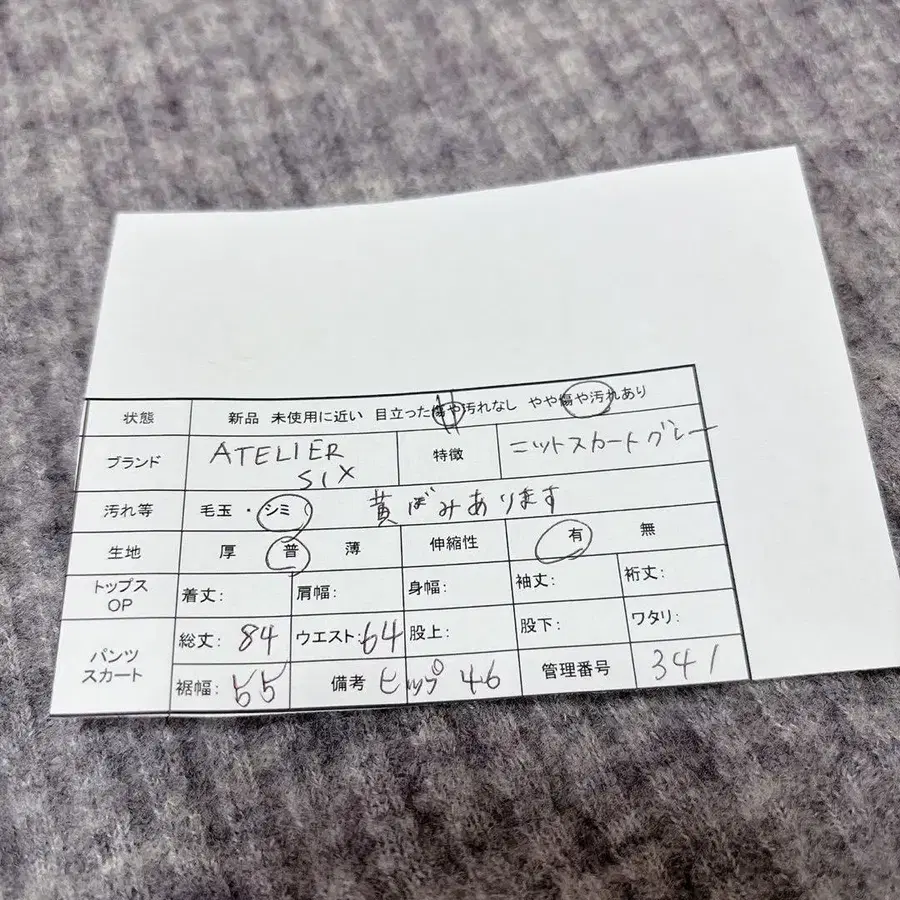 状態 新品 未使用に近い 目立った傷や汚れなし やや傷や汚れあり
ブランド ATELIER SIX 特徴 ニットスカートグレー
汚れ等 毛玉・シミ 黄ばみあります
生地 厚 普 薄 伸縮性 有 無
トップス OP 着丈: 肩幅: 身幅: 袖丈: 裄丈:
パンツ スカート 総丈: 84 ウエスト: 64 股上: 股下: ワタリ:
裾幅: 55 備考 ヒップ 46 管理番号 341